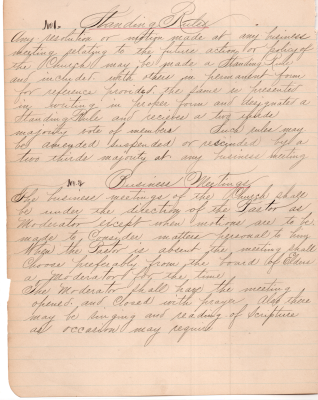 No 1. Standing Rules
Any resolution or motion made at any business
meeting relating to the future action or policy of
the Church may be made a Standing Rule
and included with others in permanent form
for reference provided the same is presented
in writing in proper form and designated a
Standing Rule and receives a two thirds
majority vote of members Such rules may
be amended suspended or rescinded by a
two thirds majority at any business meeting
Business Meetings
The business meetings of the Church shall
be under the direction of the Pastor as
Moderator except when motions are to be
made to consider matters personal to him
When the Pastor is absent the meeting shall
choose preferably from the board of Elders
a "Moderator" for the time
The Moderator shall have the meeting
opened and closed with prayer Also there
may be singing and reading of Scripture
as occasion may require